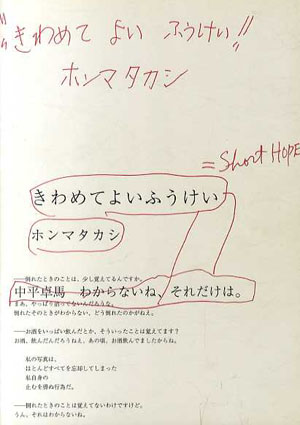 "きわめて よい ふうけい"
ホンマタカシ
= Short HOPE
きわめてよいふうけい
ホンマタカシ
――倒れたときのことは、少し覚えてるんですか。
中平卓馬 わからないね、それだけは。
まあ、やっぱり酔ってないんだろうな。
倒れたそのときがわからない、どう倒れたのかがねえ。
――お酒をいっぱい飲んだとか、そういったことは覚えてます?
お酒、飲んだんだろうねえ、あの頃、お酒飲んでましたからね。
私の写真は、
ほとんどすべてを忘却してしまった
私自身の
止むを得ぬ行為だ。
――倒れたときのことは覚えてないわけですけど。
うん、それはわからないね。